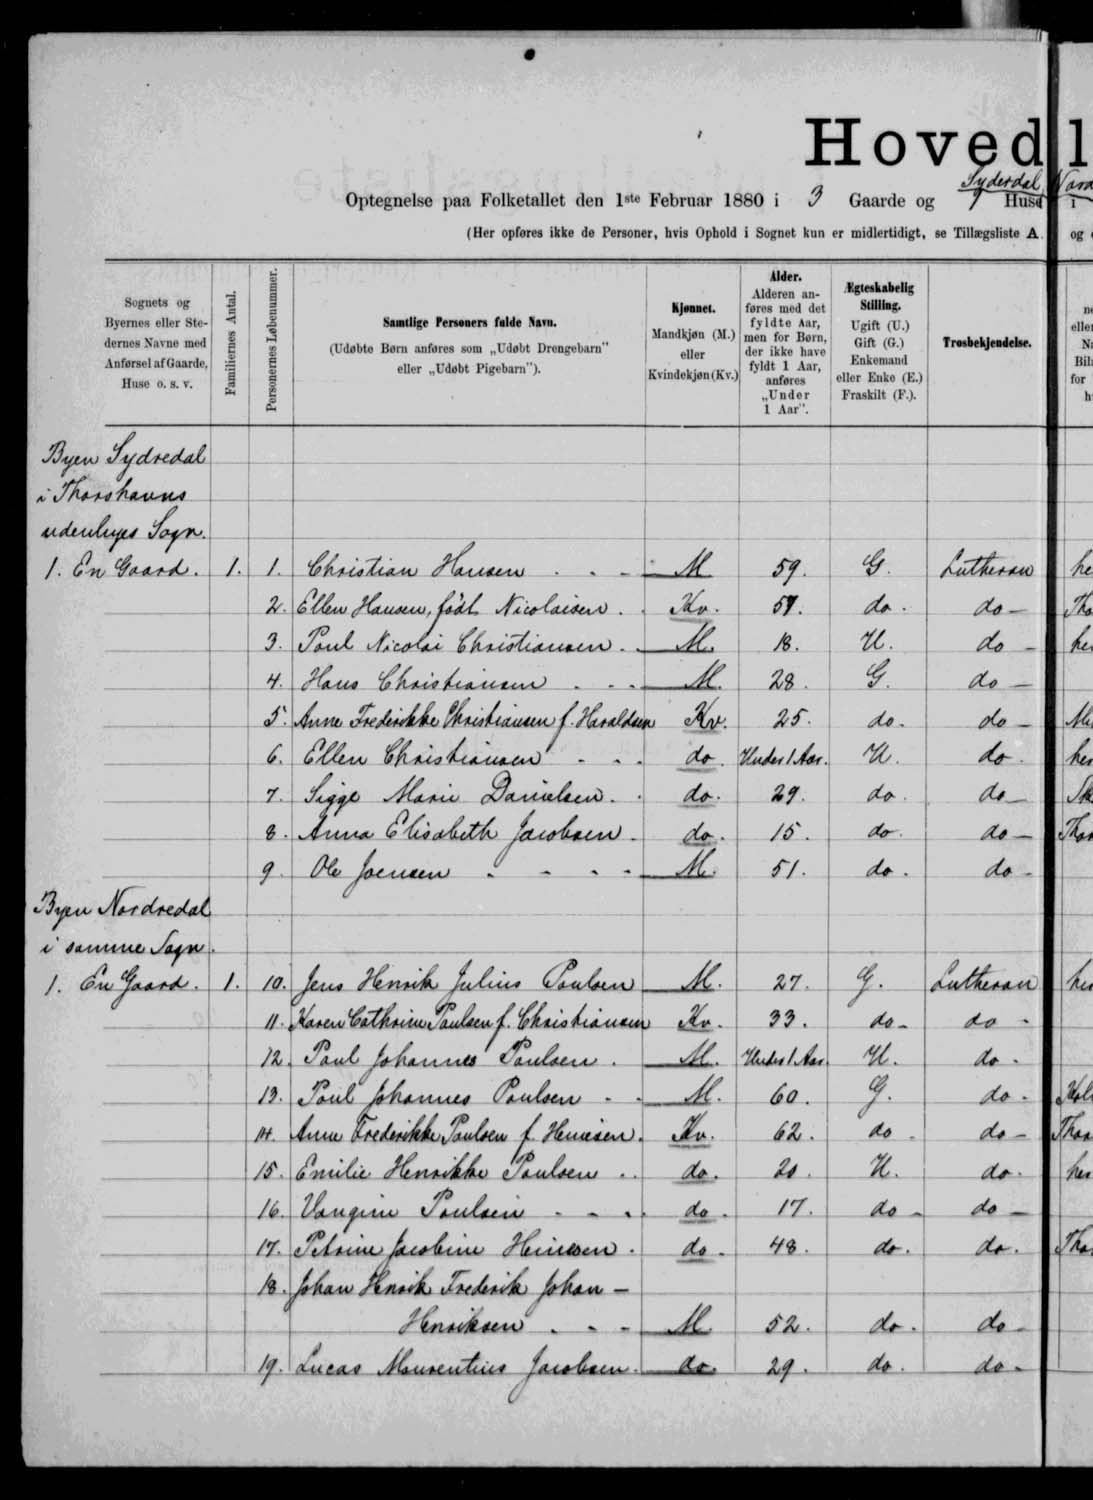 Hovedl
Syderdal, Nord
Optegnelse paa Folketallet den 1ste Februar 1880 i 3 Gaarde og Huse i
(Her opføres ikke de Personer, hvis Ophold i Sognet kun er midlertidigt, se Tillægsliste A. og
Sognets og Byernes eller Stedernes Navne med Anførsel af Gaarde, Huse o. s. v.
Familiernes Antal.
Personernes Løbenummer.
Samtlige Personers fulde Navn.
(Udøbte Børn anføres som „Udøbt Drengebarn" eller „Udøbt Pigebarn").
Kjønnet.
Mandkjøn (M.) eller Kvindekjøn (Kv.)
Alder.
Alderen anføres med det fyldte Aar, men for Børn, der ikke have fyldt 1 Aar, anføres „Under 1 Aar".
Ægteskabelig Stilling.
Ugift (U.) Gift (G.) Enkemand eller Enke (E.) Fraskilt (F.).
Trosbekjendelse.
Byen Sydredal
i Thorshavns
udenbyes Sogn.
1. En Gaard. 1. 1. Christian Hansen M 59. G. Lutheran he
2. Ellen Hansen, født Nicolaisen. Kv. do. do Tho
3. Poul Nicolai Christiansen. M. 18. U. do he
4. Hans Christiansen M. 28. G. do
5. Anne Frederikke Christiansen f. Haraldsen Kv. 25. do. do
6. Ellen Christiansen do. Under 1 Aar. U. do. her
7. Sigge Marie Danielsen. do. 29. do. do
8. Anna Elisabeth Jacobsen. do. 15. do. do Thor
9. Ole Joensen M. 51. do. do
Byen Nordredal
i samme Sogn.
1. En Gaard. 1. 10. Jens Henrik Julius Poulsen M. 27. G. Lutheran her
11. Karen Cathrine Paulsen f. Christiansen Kv. 33. do. do
12. Poul Johannes Poulsen. M. Under 1 Aar. U. do.
13. Poul Johannes Poulsen M. 60. G. do.
14. Anne Frederikke Poulsen f. Heinesen. Kv. 62. do. do Thor
15. Emilie Henrikke Poulsen do. 20. U. do. her
16. Poulsen do. 17. do do
17. Petrine Jacobine Heinesen. do. 48. do. do. Tho
18. Johan Henrik Frederik Johan –
Henriksen M 52. do. do
19. Lucas Maurentius Jacobsen. do. 29. do. do.